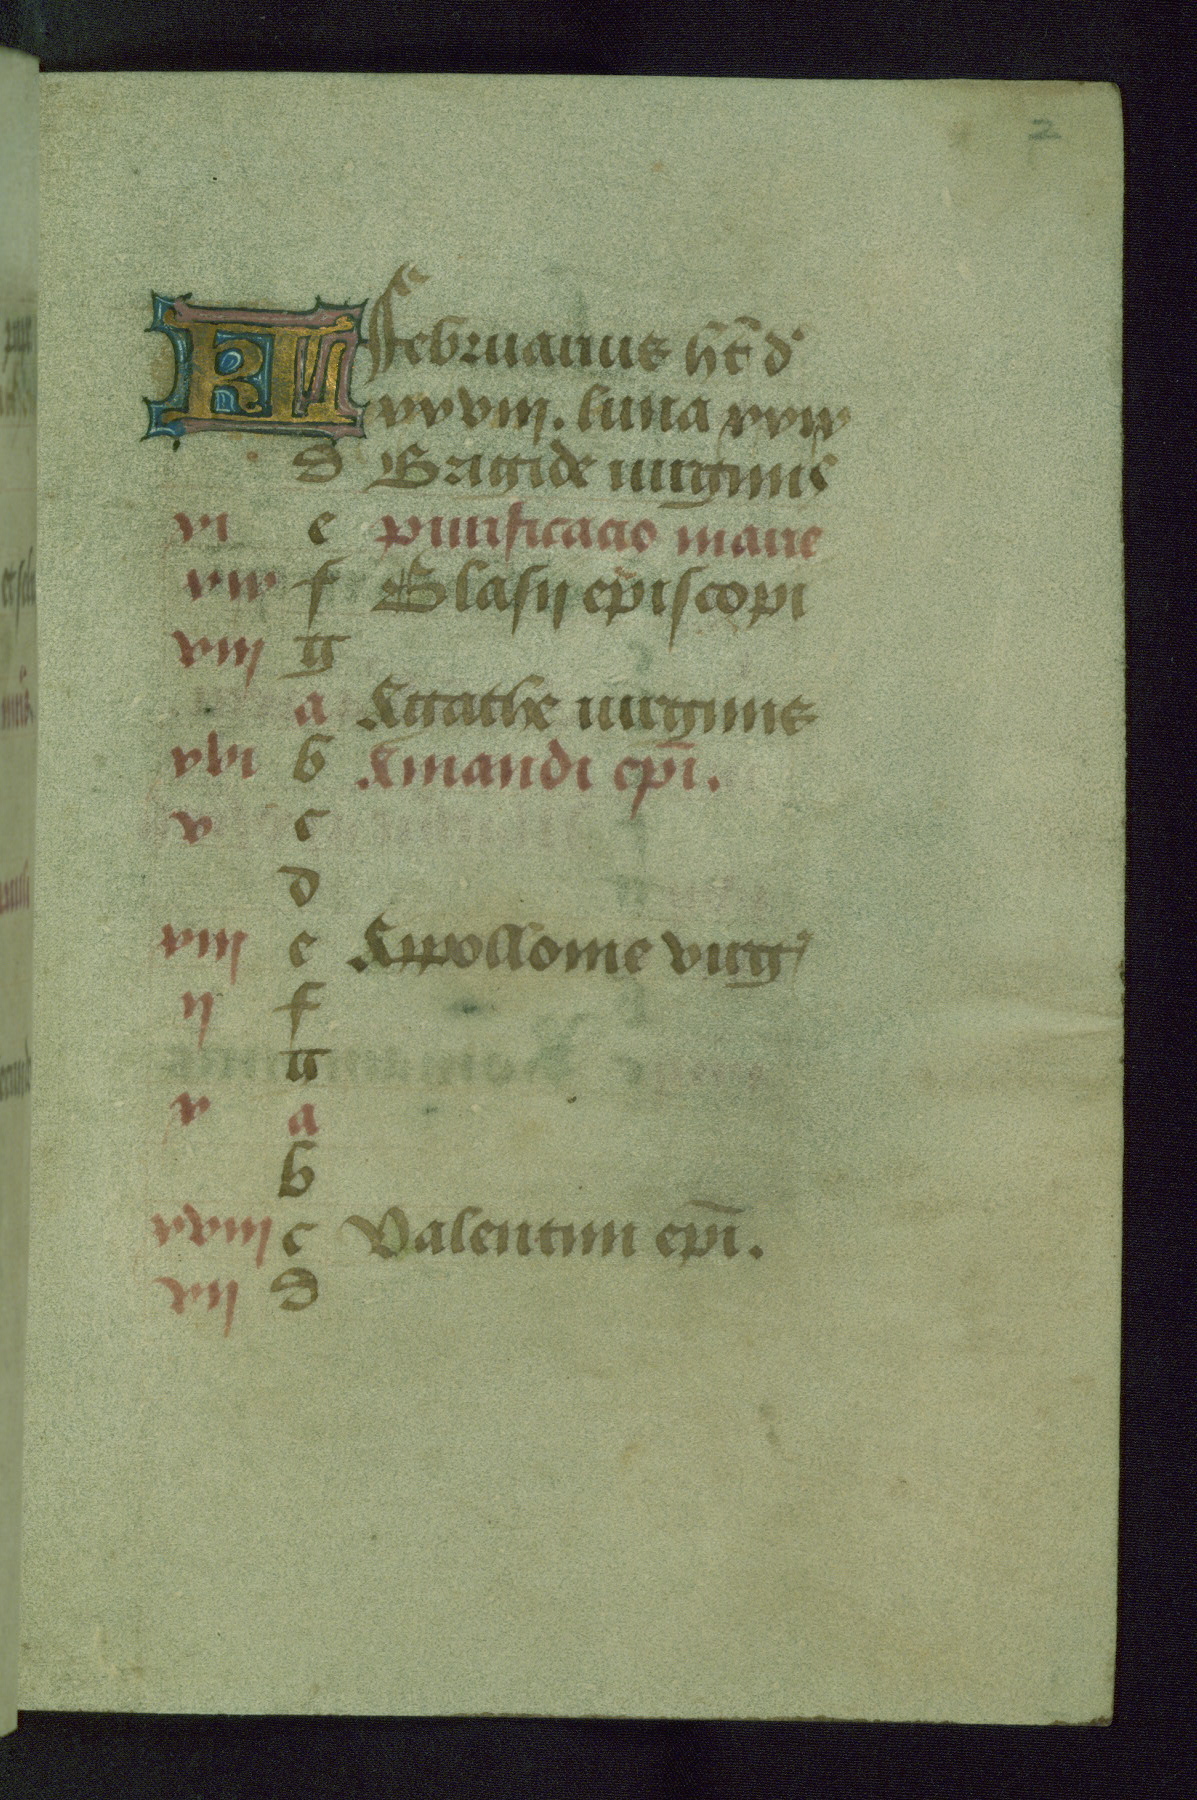 2
KL februarius hēt d'
xxviii. luna xxix
d Brigide uirginis
xi e purificacio marie
xix f Blasij episcopi
viii g
a Agathe uirginis
xvi b Amandi epī.
v c
d
xiii e Appollonie virg'
ij f
g
x a
b
xviii c Valentini epī.
vij d